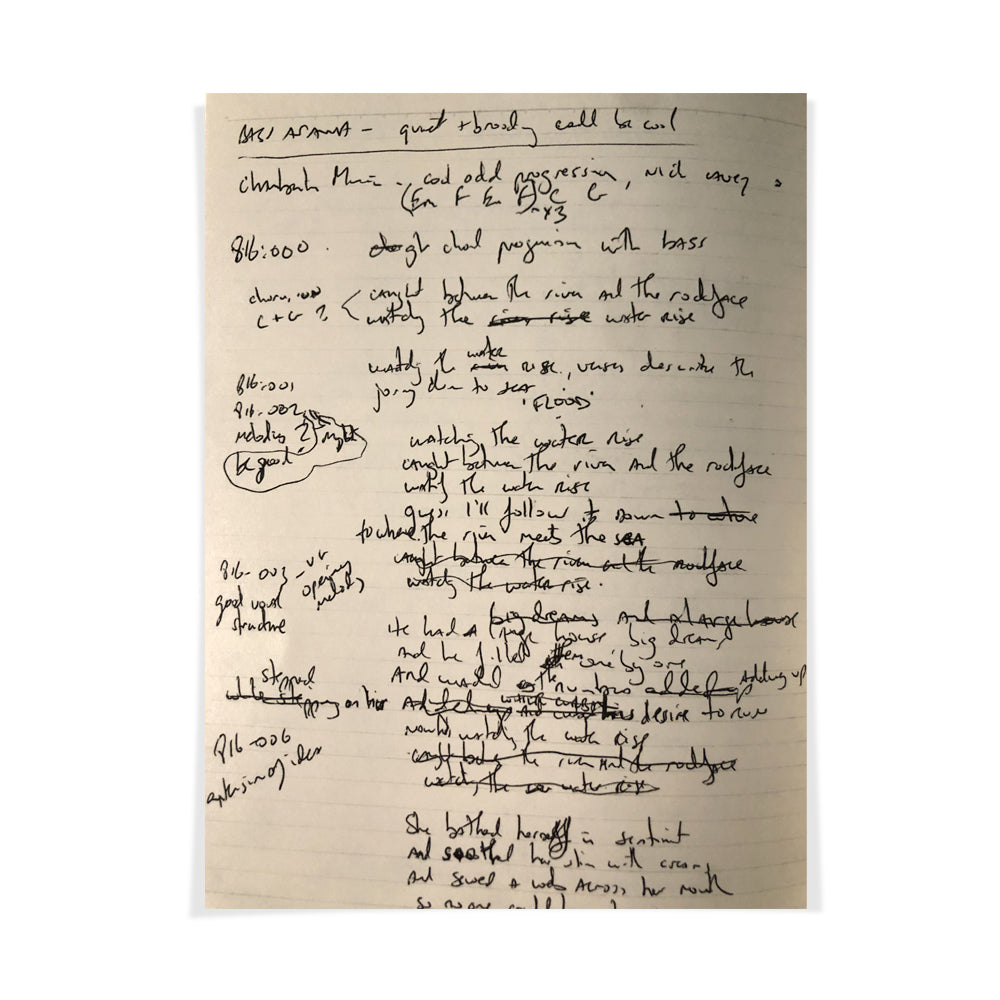 quiet + broody could be cool
odd progression,
(Em F Em F) C G
x3
816:000 . chord progression with BASS
caught between the river and the rockface
C + G ? watching the river rise water rise
water
watching the rise, verses describe the
816:001 journey down to sea
816-002 'FLOOD'
melodies ? might
be good
watching the water rise
caught between the river and the rockface
watching the water rise
guess I'll follow it down to where
to where the river meets the sea
816-003 caught between the river and the rockface
opening melody watching the water rise.
good vocal
structure
big dreams and a large house
He had a large house big dreams
And he filled them one by one
stepped And the numbers added up Adding up
desire to run
watching the water rise
816-006 caught between the river and the rockface
extension of idea watching the water rise
She bathed herself in sentiment
And soothed her skin with cream
And sewed a web across her mouth
so no one could